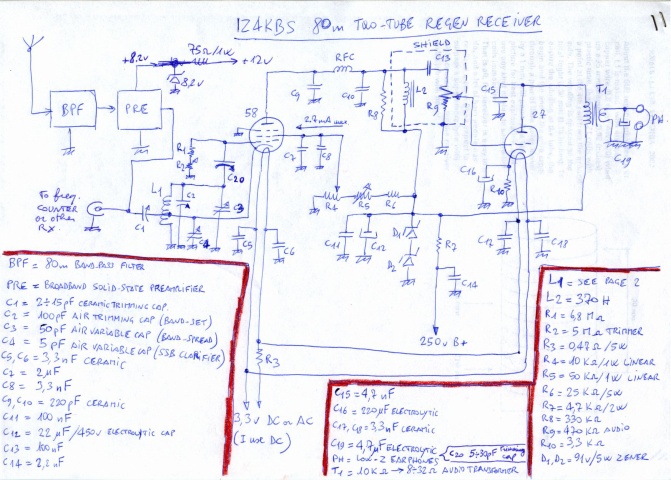 IZ4KBS 80m TWO-TUBE REGEN RECEIVER
11
+8.2V
75Ω/1W
+12V
8,2V
BPF
PRE
58
RFC
C9
C10
R8
SHIELD
L2
C13
R9
C15
27
T1
PH.
C19
C16
R10
2.7mA max
C7
C8
R1
R2
C20
L1
C2
C3
C1
C4
C5
C6
To freq.
COUNTER
or other
RX.
R4
R5
R6
C11
C12
D1
D2
R7
C14
C17
C18
250V B+
R3
3,3V DC or AC
(I use DC)
BPF = 80m BAND-PASS FILTER
PRE = BROADBAND SOLID-STATE PREAMPLIFIER
C1 = 2÷15pF CERAMIC TRIMMING CAP.
C2 = 100pF AIR TRIMMING CAP (BAND-SET)
C3 = 50pF AIR VARIABLE CAP (BAND-SPREAD)
C4 = 5pF AIR VARIABLE CAP (SSB CLARIFIER)
C5, C6 = 3,3nF CERAMIC
C7 = 2μF
C8 = 3,3nF
C9, C10 = 220pF CERAMIC
C11 = 100nF
C12 = 22μF/450V ELECTROLYTIC CAP
C13 = 100nF
C14 = 2,2μF
C15 = 4,7nF
C16 = 220μF ELECTROLYTIC
C17, C18 = 3,3nF CERAMIC
C19 = 4,7μF ELECTROLYTIC
C20 5÷30pF Trimming cap
PH = LOW-Z EARPHONES
T1 = 10KΩ → 8÷32Ω AUDIO TRANSFORMER
L1 = SEE PAGE 2
L2 = 370H
R1 = 6,8MΩ
R2 = 5MΩ TRIMMER
R3 = 0,48Ω/5W
R4 = 10KΩ/1W LINEAR
R5 = 50KΩ/1W LINEAR
R6 = 25KΩ/5W
R7 = 4,7KΩ/2W
R8 = 330KΩ
R9 = 470KΩ AUDIO
R10 = 3,3KΩ
D1, D2 = 91V/5W ZENER